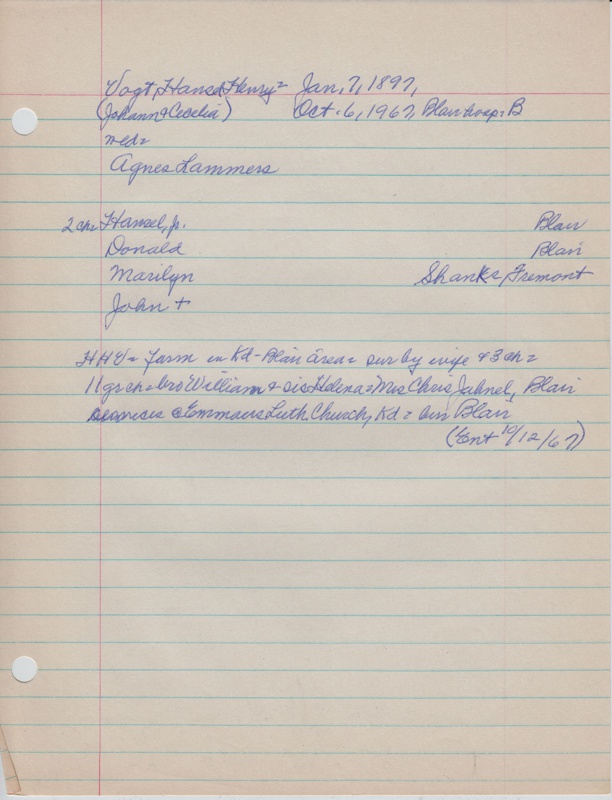 Vogt, Hansel Henry = Jan. 7, 1897,
(Johann & Cecelia) Oct. 6, 1967, Blair hosp = B
md =
Agnes Lammers
2 ch = Hansel, jr. Blair
Donald Blair
Marilyn Shanks, Fremont
John +
HHV = farm in Kd - Blair area = sur by wife & 3 ch =
11 grch = bro William & sis Helena = Mrs Chris Jahnel, Blair
services @ Emmaus Luth Church, Kd = bur Blair
(Ent 10/12/67)